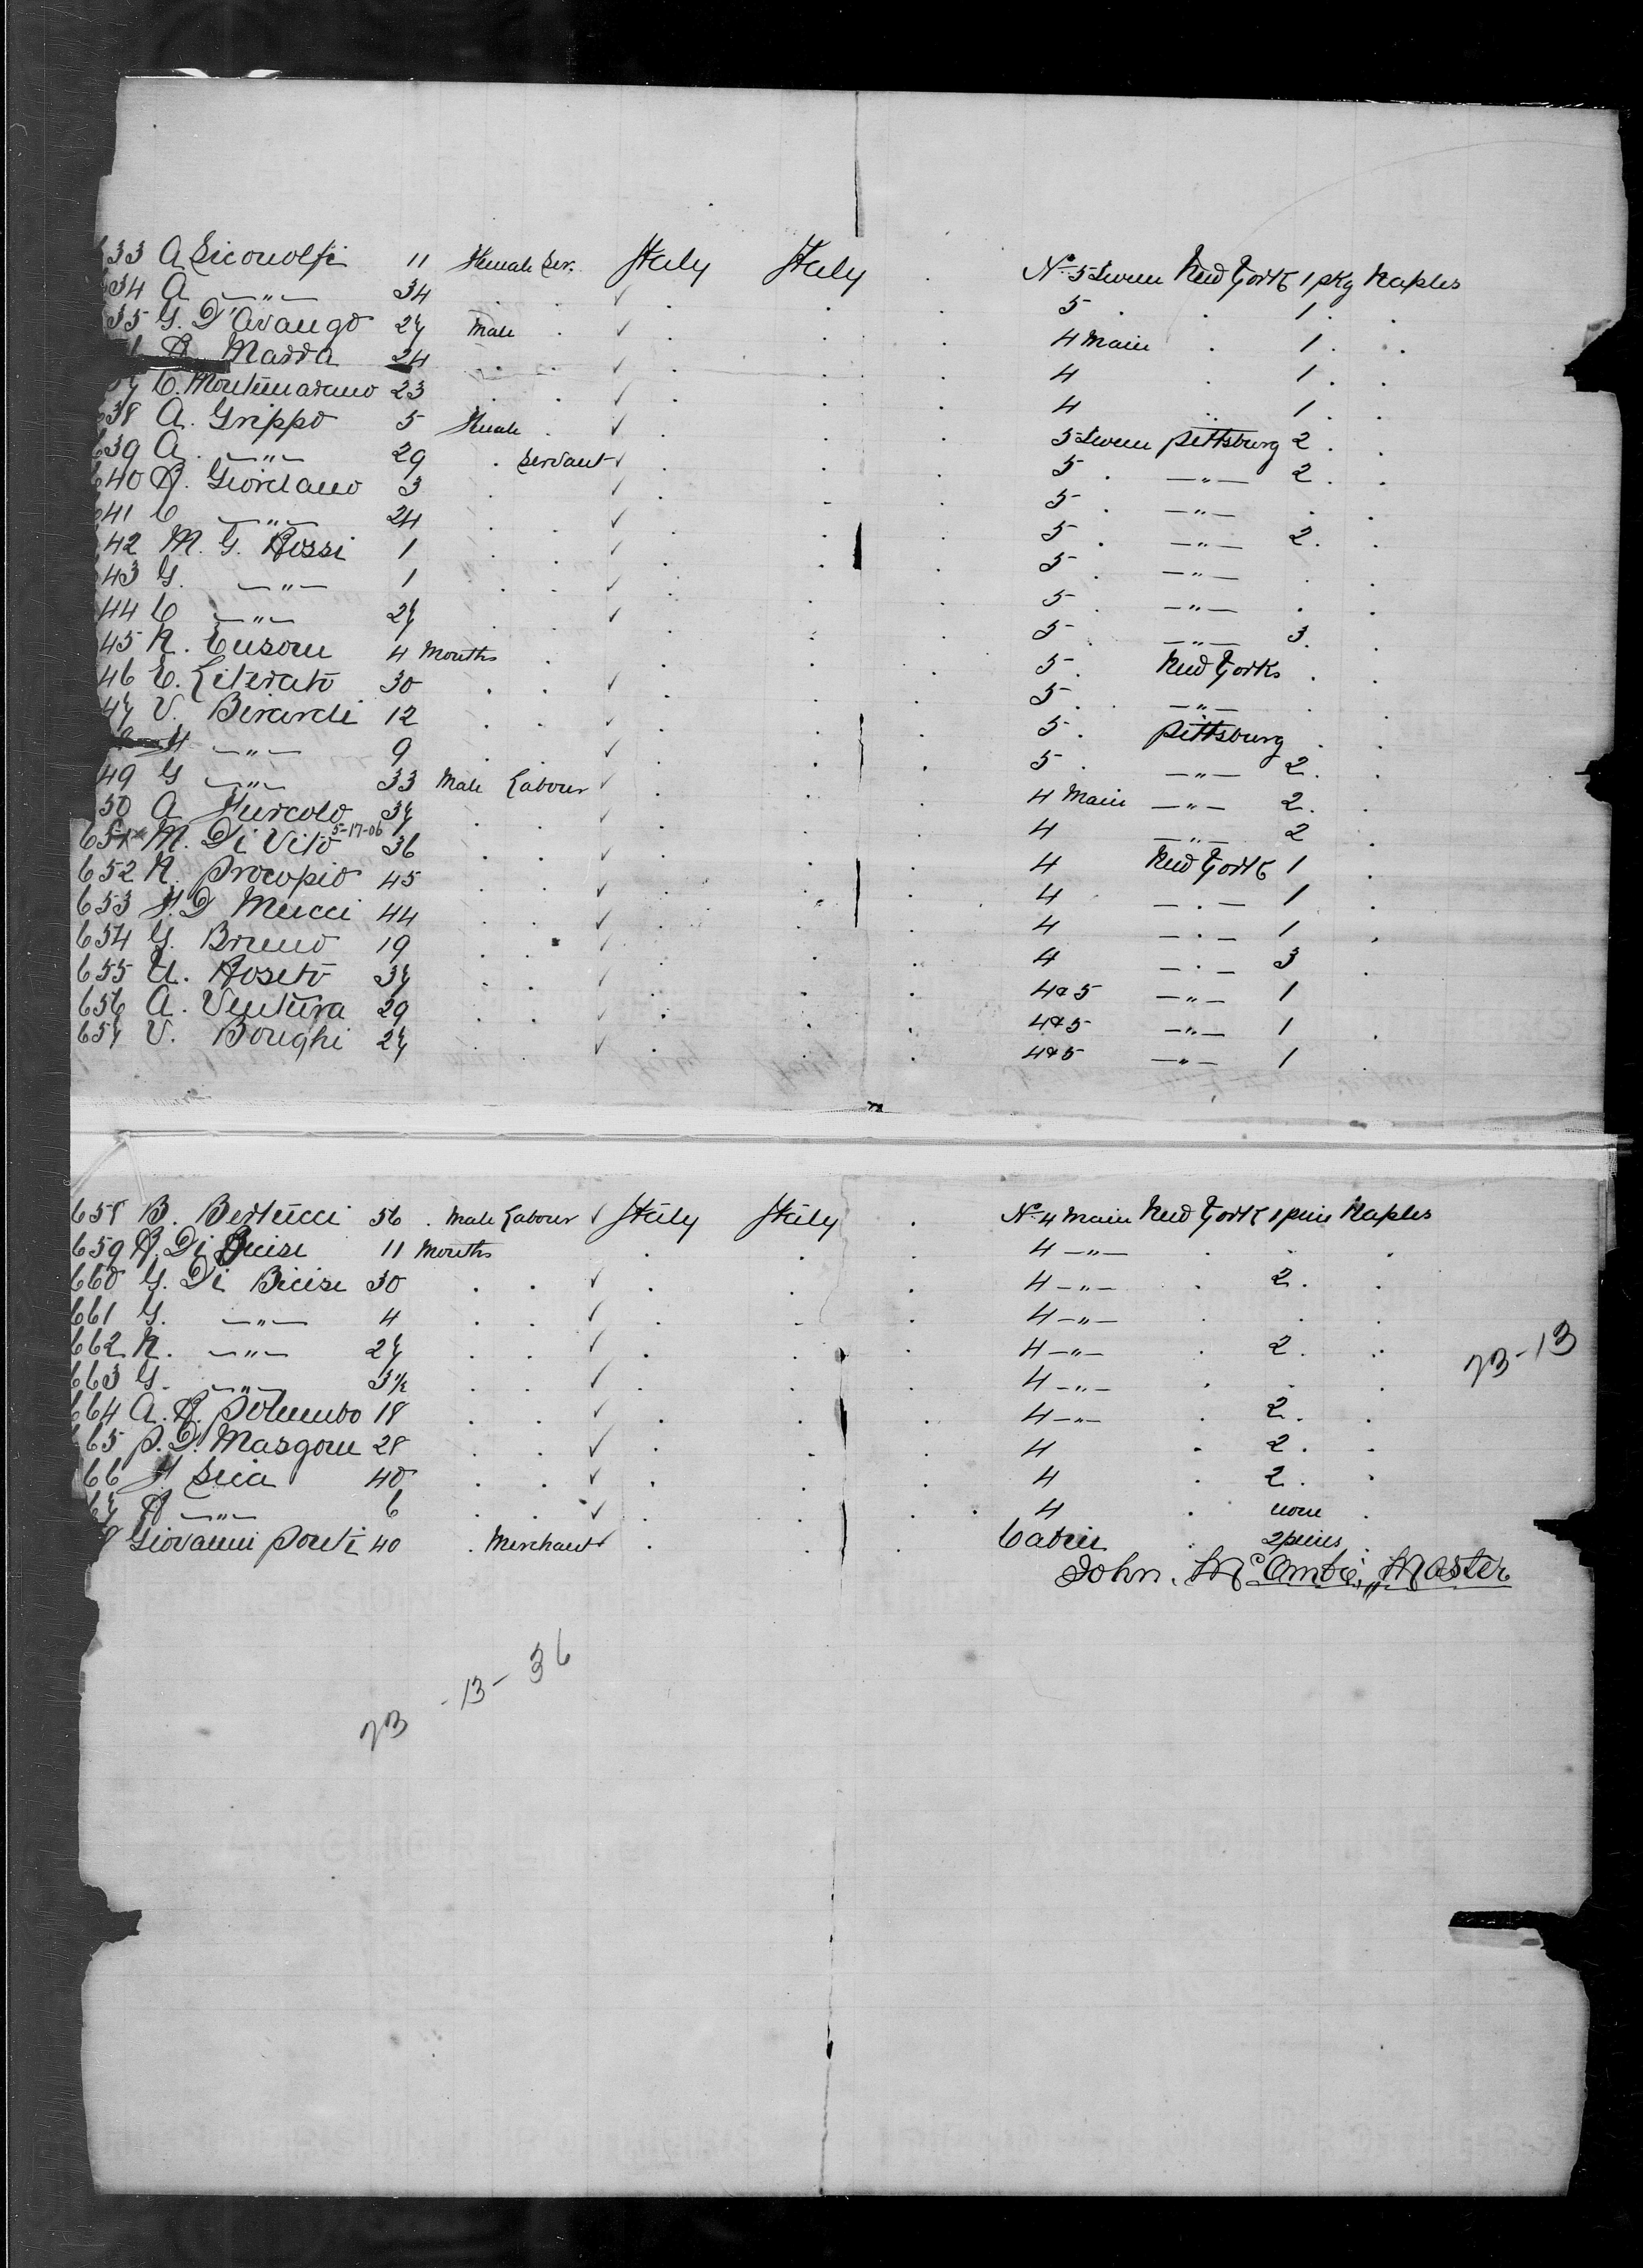 633 A Siconolfi 11 Female Ser. Italy Italy No 5 Tween New York 1 pkg Naples
634 A —"— 34 5 1
635 G. D'Avango 27 Male 4 Main 1
Marra 24 4 1
37 C. Montemarano 23 4 1
638 A. Grippo 5 Female 5 Tween Pittsburg 2
639 A. —"— 29 Servant 5 —"— 2
640 R. Giordano 3 5 —"—
641 C —"— 24 5 —"— 2
642 M. G. Rossi 1 5 —"—
643 G. —"— 1 5 —"—
644 C —"— 27 5 —"— 3
645 N. 4 Months 5 New York
646 E. Literato 30 5 —"—
647 V. Berardi 12 5 Pittsburg
—"— 9 5 —"— 2
649 G —"— 33 Male Labour 4 Main —"— 2
650 A 37 4 —"— 2
651 x M. Di Vito 5-17-06 36 4 New York 1
652 N. Procopio 45 4 — . — 1
653 F. D Mucci 44 4 — . — 1
654 G. Bruno 19 4 — . — 3
655 U. Roseto 37 4 & 5 —"— 1
656 A. Ventura 29 4 & 5 —"— 1
657 V. Borighi 27 4 & 5 —"— 1
658 B. Bertucci 56 Male Labour Italy Italy No 4 Main New York 1 piece Naples
659 R. Di 11 Months 4 —"—
660 G. Di 30 4 —"— 2
661 G. —"— 4 4 —"—
662 N. —"— 27 4 —"— 2
663 G. —"— 3½ 4 —"—
664 A. R. Polumbo 18 4 —"— 2
665 P. D. Masgone 28 4 2
666 F 40 4 2
67 —"— 6 4 none
8 Giovanni Ponti 40 Merchant Cabin 2 pieces
John. McOmbie, Master
73-13
73 -13- 36